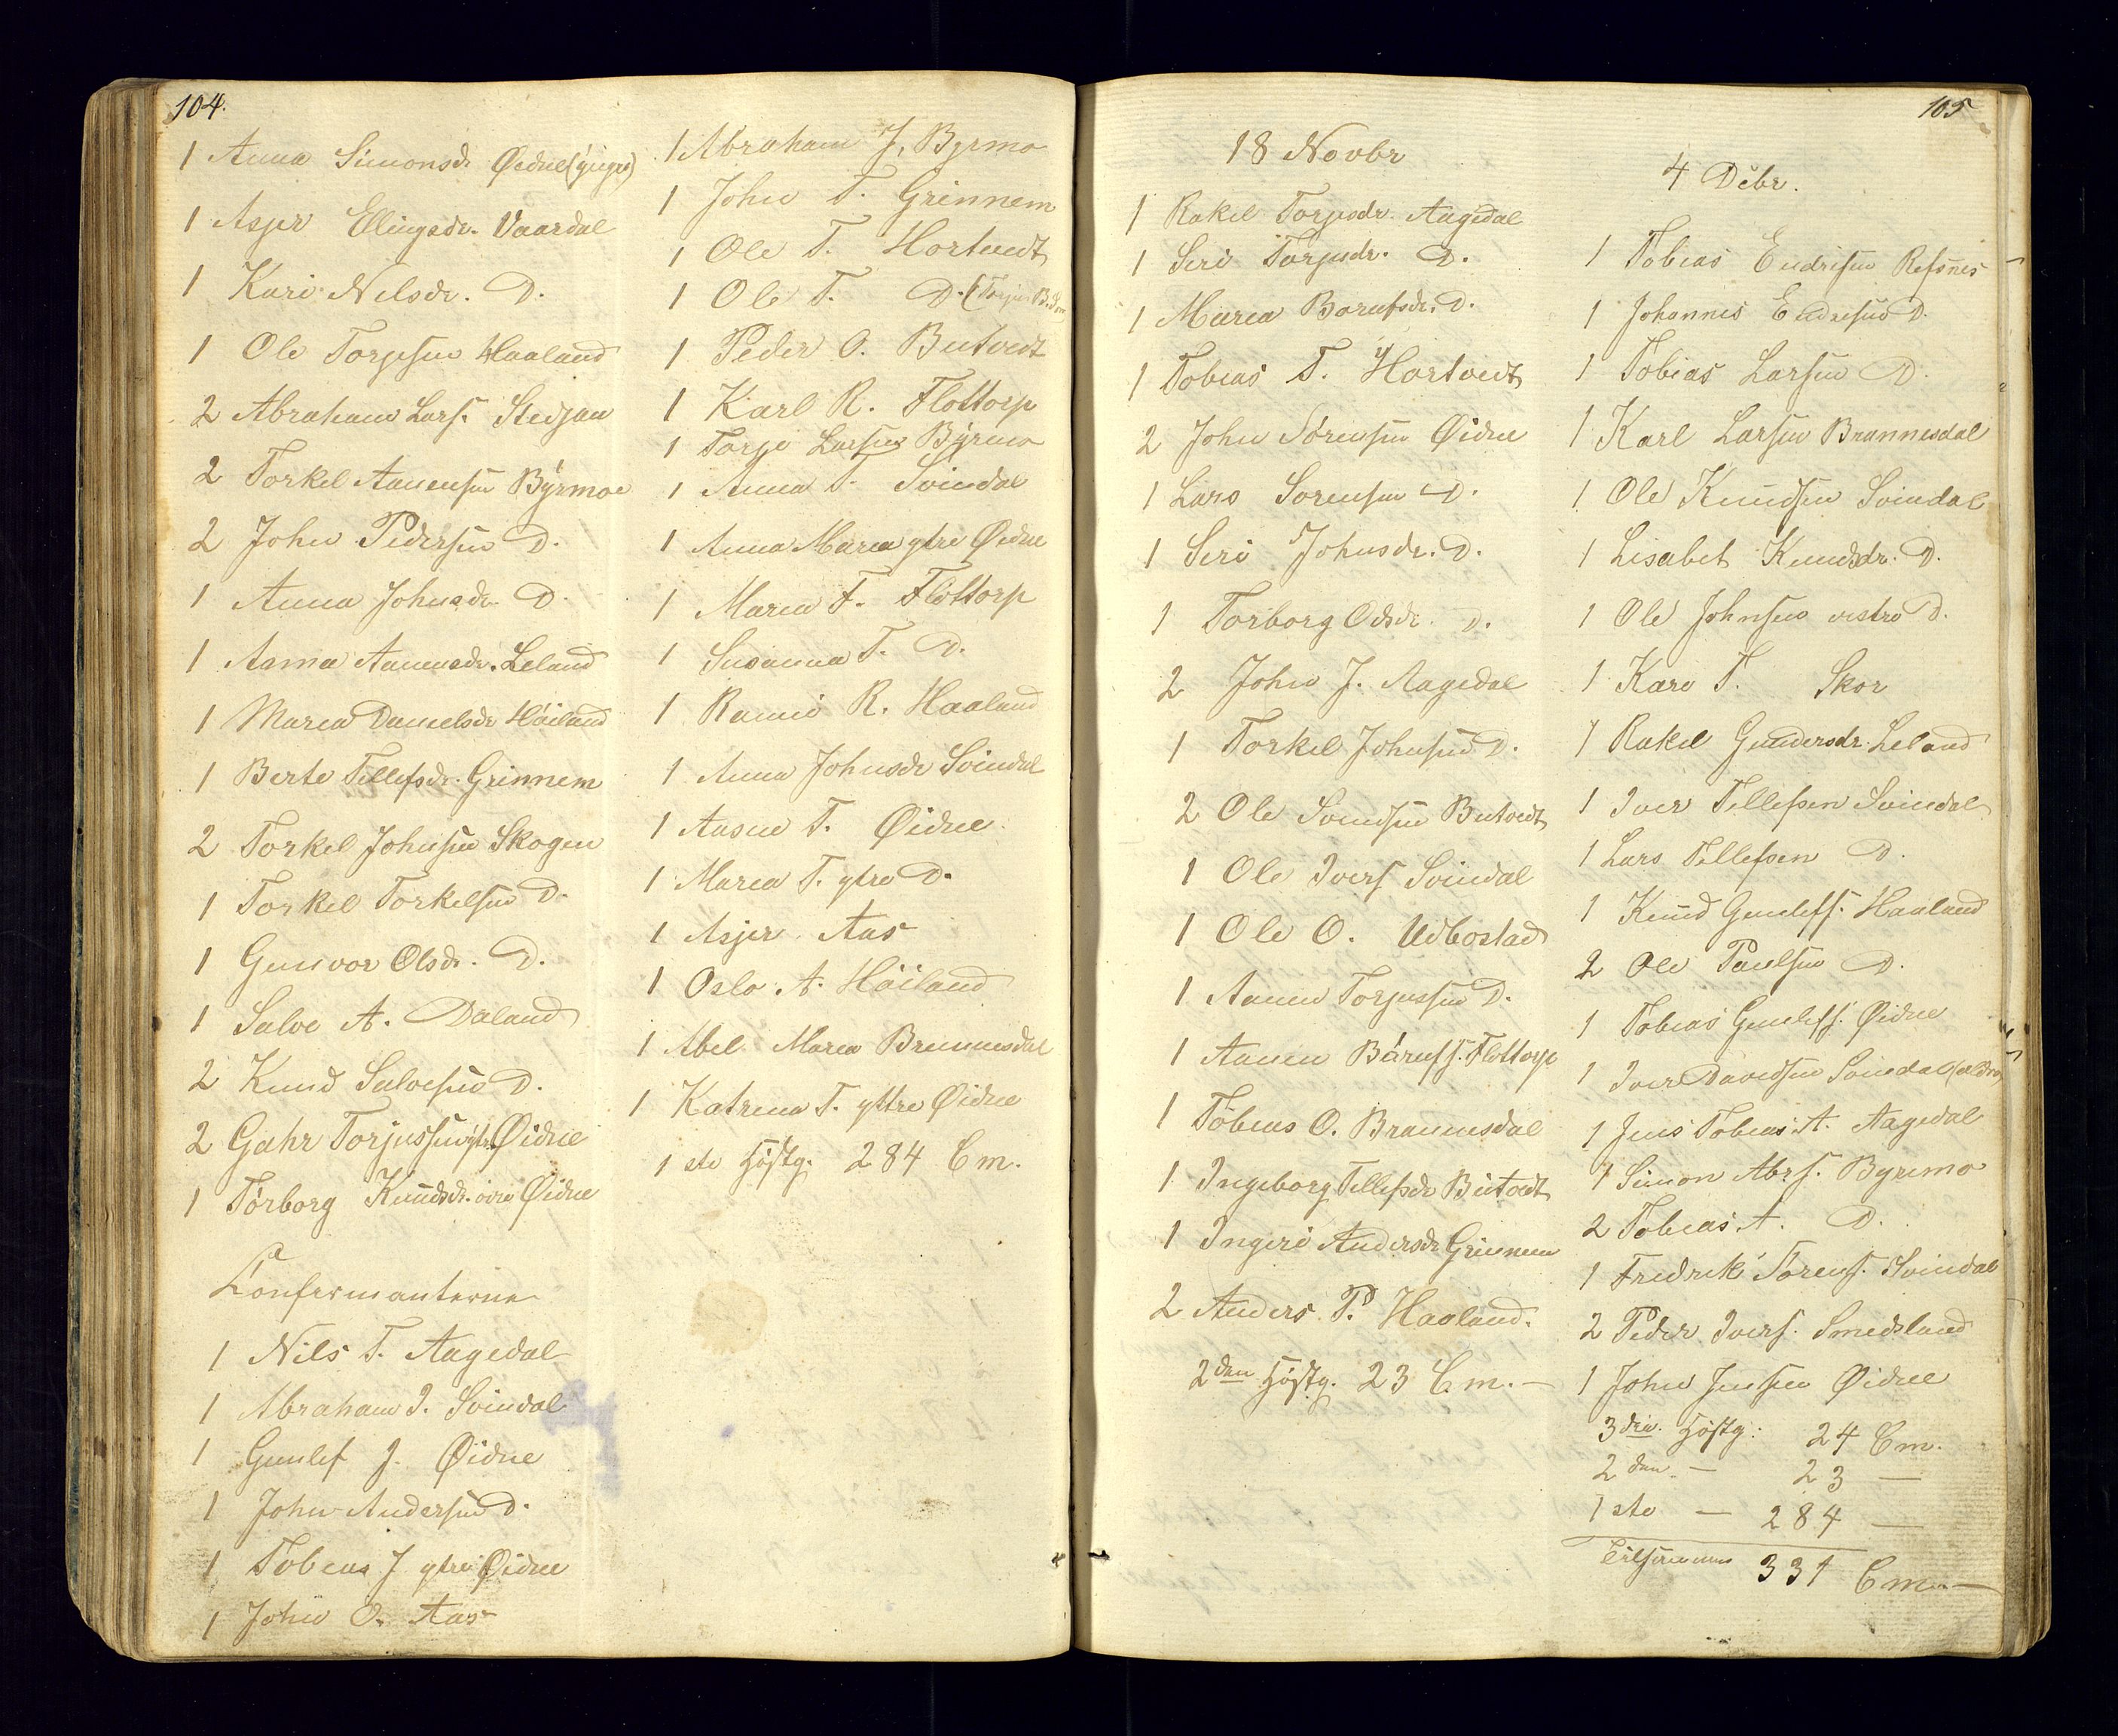 104.
1 Anna Simonsd. Øidne (yngre)
1 Asjer Ellingsdr. Vaardal
1 Kari Nilsdr. D.
1 Ole Torjesen Haaland
2 Abraham Lars. Stedjan
2 Torkel Aanensen Byrmoe
2 John Pedersen D.
1 Anna Johnsdr. D.
1 Asma Aanensdr. Leland
1 Maria Danielsdr Höiland
1 Berte Tellefsdr. Grinnem
2 Torkel Johnsen Skogen
1 Torkel Torkelsen D.
1 Gunvor Olsdr. D.
1 Salve A. Daland
2 Knud Salvesen D.
2 Gahr Torjussen ytr. Øidne
1 Torborg Knudsdr. övre Øidne
Confermanterne
1 Nils T. Aagedal
1 Abraham I. Svindal
1 Gunlef J. Øidne
1 John Andersen D.
1 Tobias J ytre Øidne
1 John O. Aas
1 Abraham J. Byrmo
1 John T. Grinnem
1 Ole T. Hortvedt
1 Ole T. D. (Torjus B. Søn
1 Peder O. Butvedt
1 Karl R. Flottorp
1 Torje Larsen Byrmo
1 Anna T. Svindal
1 Anna Maria ytre Øidne
1 Maria F. Flottorp
1 Susanna T. D.
1 Rannei R. Haaland
1 Anna Johnsdr Svindal
1 Aasne T. Øidne
1 Maria T. ytre D.
1 Asjer Aas
1 Oslo A. Höiland
1 Abel Maria Brunnesdal
1 Katrina T. yttre Øidne
1 ste Höjtg. 284 Cm.
105
18 Novbr
1 Rakel Torjesdr. Aagedal
1 Seri Torjusdr. D.
1 Maria Borufsdr. D.
1 Tobias T. Hortvedt
2 John Sörensen Øidne
1 Lars Sorensen D.
1 Seri Johnsdr. D.
1 Torborg Odsdr. D.
2 John J. Aagedal
1 Torkel Johnsen D.
2 Ole Svendsen Butvedt
1 Ole Ivers Svindal
1 Ole O. Udbostad
1 Aanen Torjussen D.
1 Aanen Bårufs. Flottorp
1 Tobias O. Braunesdal
1 Ingeborg Tellefsdr Butvedt
1 Ingeri Andersdr Grinnem
2 Anders P. Haaland.
2den Höjtg. 23 Cm. —
4 Debr.
1 Tobias Endresen Refsnes
1 Johannes Endresen D.
1 Tobias Larsen D.
1 Karl Larsen Brannesdal
1 Ole Knudsen Svindal
1 Lisabet Knudsdr. D.
1 Ole Johnsen vestre D.
1 Kari T. Skor
1 Rakel Gundersdr. Leland
1 Iver Tellefsen Svindal
1 Lars Tellefsen D.
1 Knud Gunlefs. Haaland
2 Ole Paulsen D.
1 Tobias Gunlefs. Øidne
1 Iver Davidsen Svindal (ældre)
1 Jens Tobias A. Aagedal
1 Simon Abrs. Byrmo
2 Tobias A. D.
1 Fredrik Sörens. Svindal
2 Peder Ivers. Smedsland
1 John Jensen Øidne
3die Höjtg: 24 Cm.
2den — 23 —
1 ste — 284 —
Tilsammen 331 Cm. —